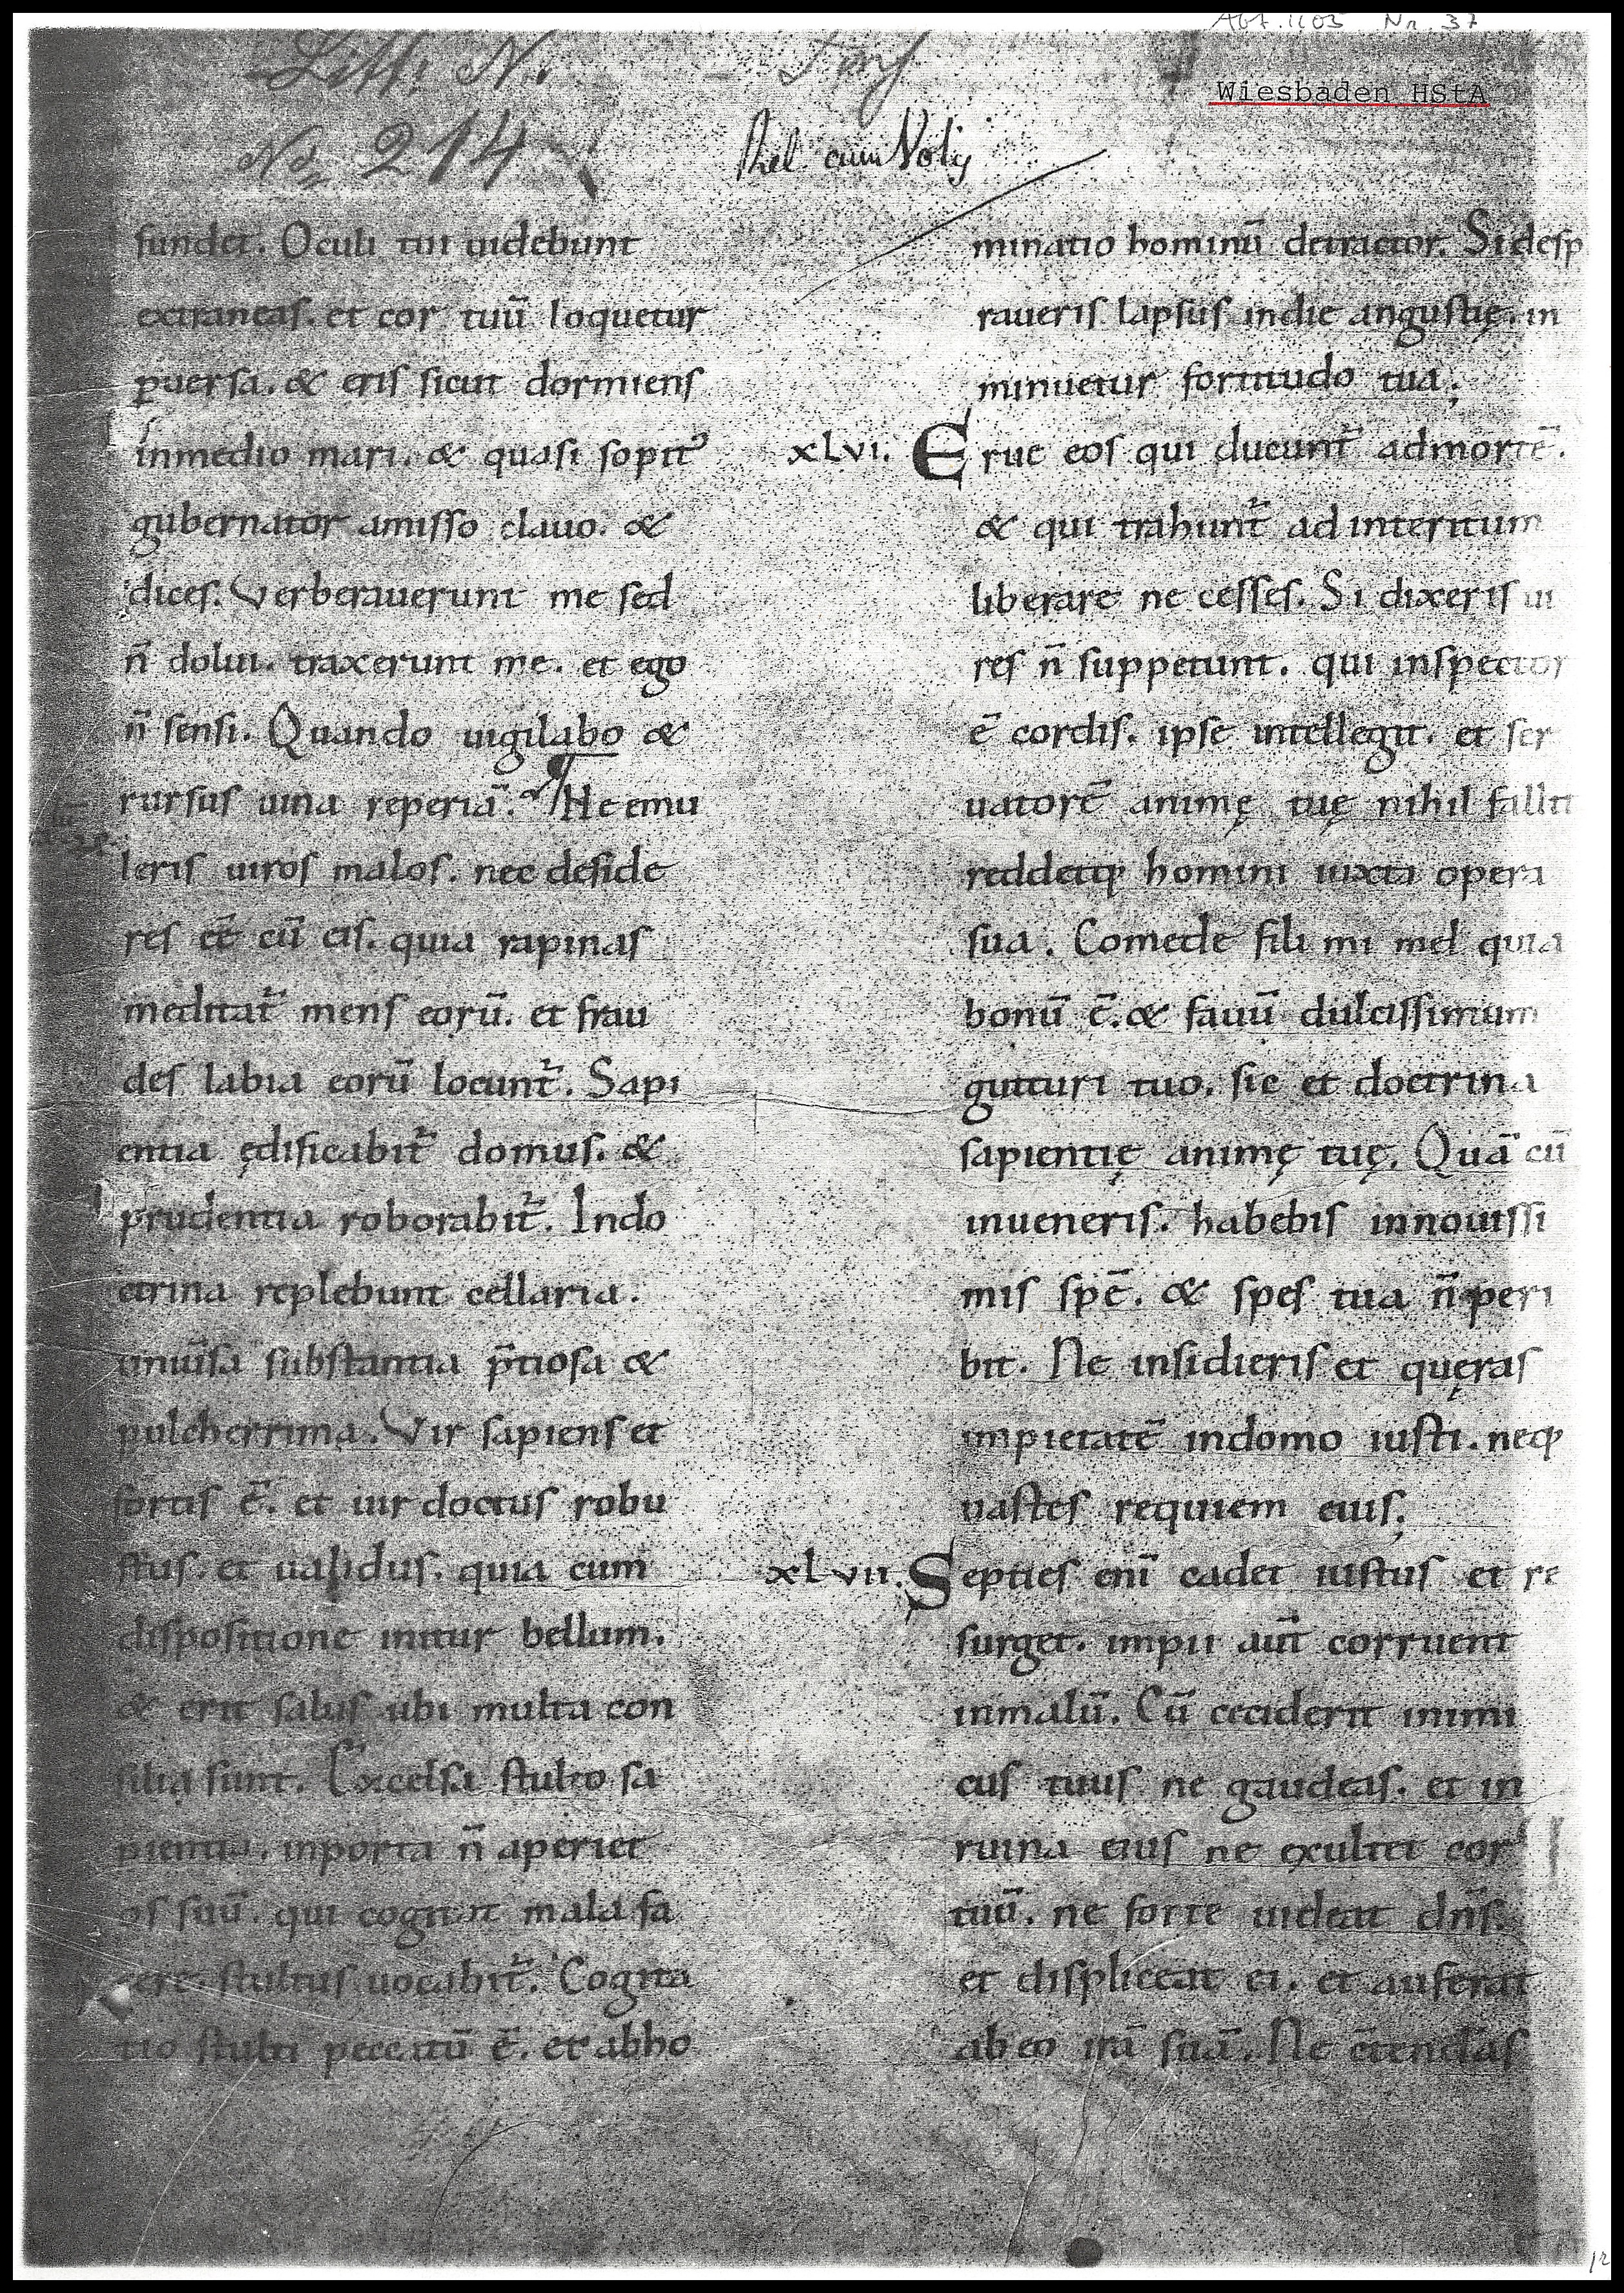 Abt. 1105 Nr. 37
Wiesbaden HStA
Litt: N.
No 214
cum Notis
fundet. Oculi tui uidebunt
extraneas. et cor tuū loquetur
ꝑuersa. & eris sicut dormiens
inmedio mari. & quasi sopit᷒
gubernator amisso clauo. &
dices. Verberauerunt me sed
n̄ dolui. traxerunt me. et ego
n̄ sensi. Quando uigilabo &
rursus uina reperiā. Ne emu
leris uiros malos. nec deside
res eē cū eis. quia rapinas
meditat᷑ mens eorū. et frau
des labia eorū locunt᷑. Sapi
entia ędificabit᷑ domus. &
prudentia roborabit᷑. Indo
ctrina replebunt cellaria.
uniūsa substantia p̄tiosa &
pulcherrima. Vir sapiens et
fortis ē. et uir doctus robu
stus. et ualidus. quia cum
dispositione initur bellum.
& erit salus ubi multa con
silia sunt. Excelsa stulto sa
pientia. inporta n̄ aperiet
os suū. qui cogitat mala fa
cere. stultus uocabit᷑. Cogita
tio stulti peccatū ē. et abho
minatio hominū detractor. Si desp
raueris lapsus indie angustię. in
minuetur fortitudo tua;
xlvi. Erue eos qui ducunt᷑ admortē.
& qui trahunt᷑ ad interitum
liberare ne cesses. Si dixeris ui
res n̄ suppetunt. qui inspector
ē cordis. ipse intellegit. et ser
uatorē animę tuę nihil fallit
reddetqꝫ homini iuxta opera
sua. Comede fili mi mel quia
bonū ē. & fauū dulcissimum
gutturi tuo. sic et doctrina
sapientię animę tuę. Quā cū
inueneris. habebis innouissi
mis spē. & spes tua n̄ peri
bit. Ne insidieris et quęras
impietatē indomo iusti. neqꝫ
uastes requiem eius;
xlvii. Septies enī cadet iustus et re
surget. impii aūt corruent
inmalū. Cū ceciderit inimi
cus tuus ne gaudeas. et in
ruina eius ne exultet cor
tuū. ne forte uideat dn̄s.
et displiceat ei. et auferat
ab eo irā suā. Ne ctendas